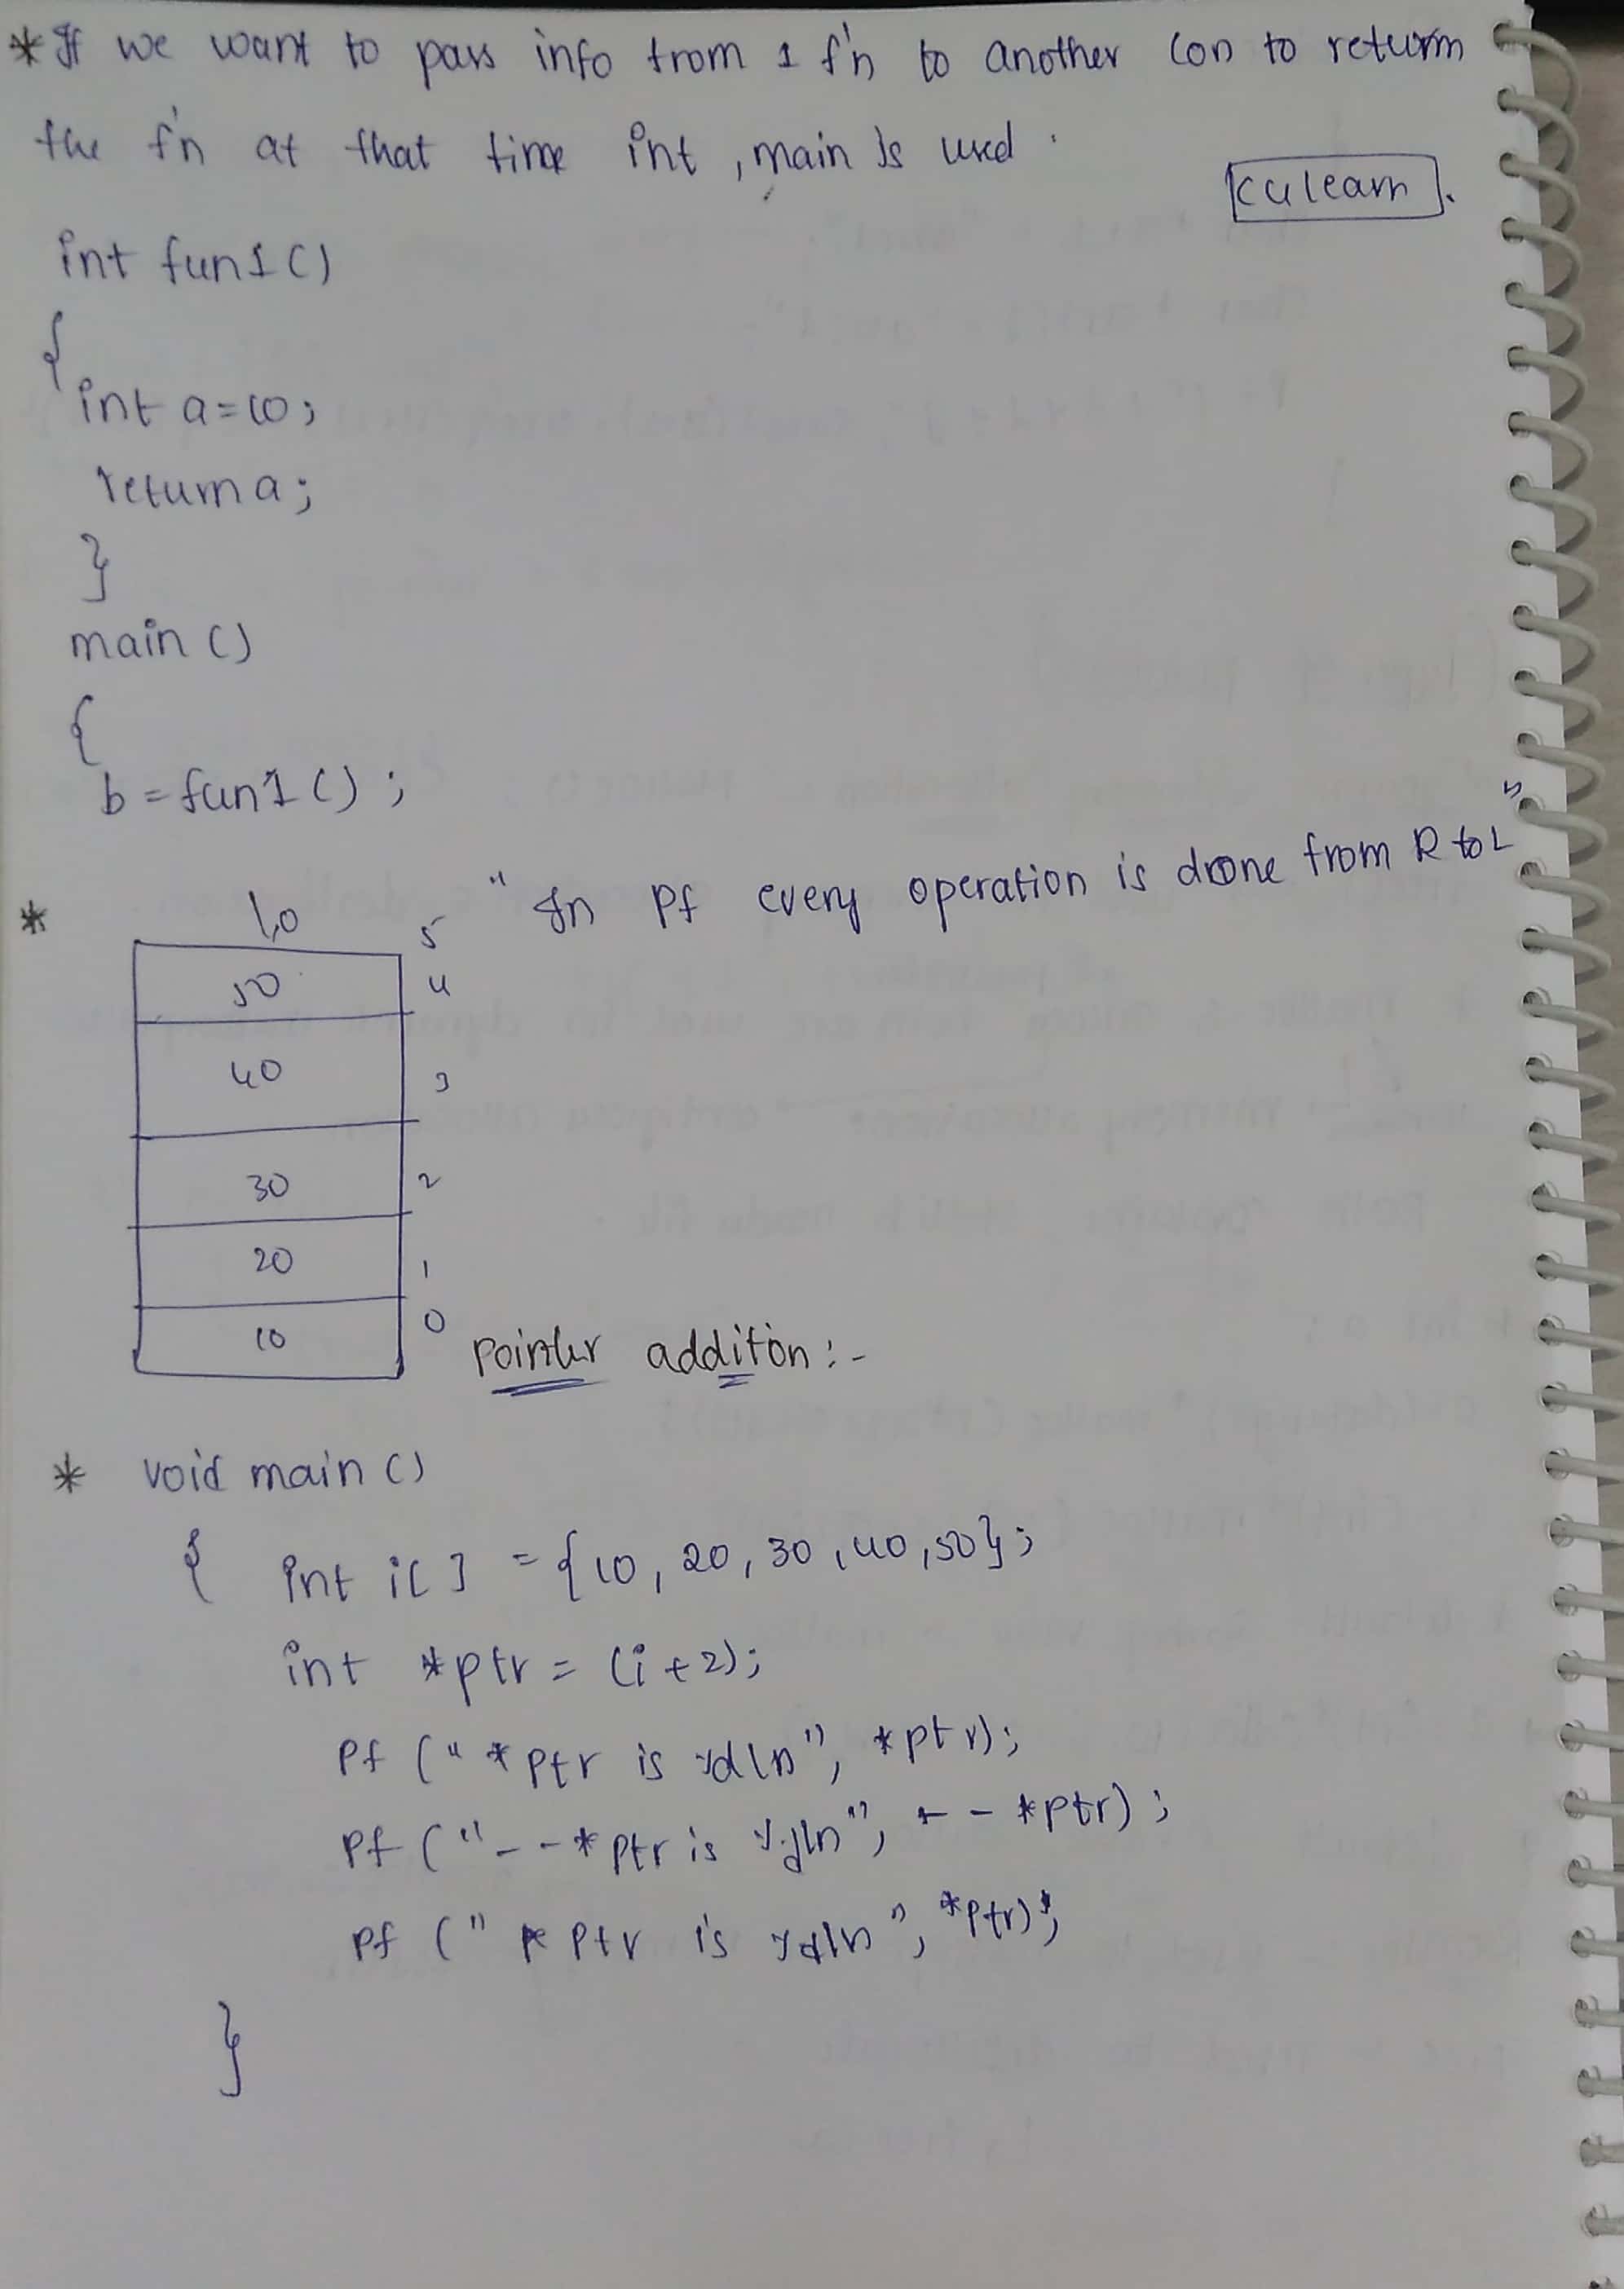 * If we want to pass info from 1 f'n to another (on to return
the f'n at that time int , main is used .
culearn .
int fun1 ()
{
int a=10;
return a;
}
main ()
{
b = fun1 () ;
* "In pf every operation is drone from R to L"
5
50 4
40 3
30 2
20 1
10 0
Pointer additon :-
* void main ()
{ int i[ ] = {10, 20, 30, 40, 50};
int *ptr = (i+2);
Pf (" *ptr is %d\n", *ptr);
Pf ("- - *ptr is %d\n", - - *ptr) ;
Pf (" * ptr is %d\n", *ptr);
}